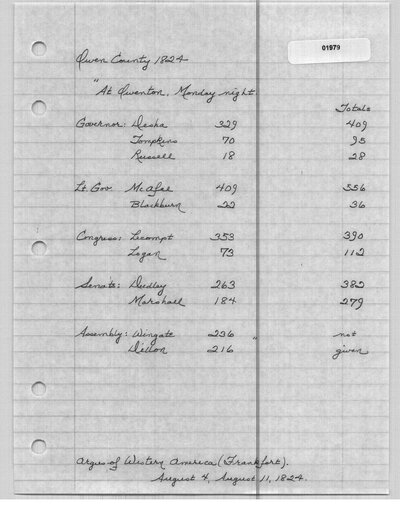 01979
Owen County 1824
"At Owenton, Monday night
Totals
Governor: Desha 329 409
Tompkins 70 95
Russell 18 28
Lt. Gov McAfee 409 556
Blackburn 22 36
Congress: Lecompt 353 390
Logan 73 112
Senate: Dudley 263 382
Marshall 184 279
Assembly: Wingate 236 " not
Dillon 216 given
Argus of Western America (Frankfort).
August 4, August 11, 1824.